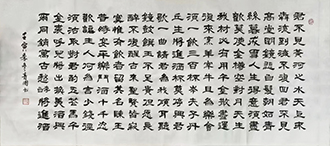 君不見黃河之水天上來
奔流到海不復回君不見
高堂明鏡悲白髮朝如青
絲暮成雪人生得意須盡
歡莫使金樽空對月天生
我材必有用千金散盡還
復來烹羊宰牛且爲樂會
須一飲三百杯岑夫子丹
丘生將進酒杯莫停與君
歌一曲請君爲我傾耳聽
鐘鼓饌玉不足貴但願長
醉不復醒古來聖賢皆寂
寞惟有飲者留其名陳王
昔時宴平樂斗酒十千恣
歡謔主人何爲言少錢徑
須沽取對君酌五花馬千
金裘呼兒將出換美酒與
爾同銷萬古愁 將進酒
壬寅